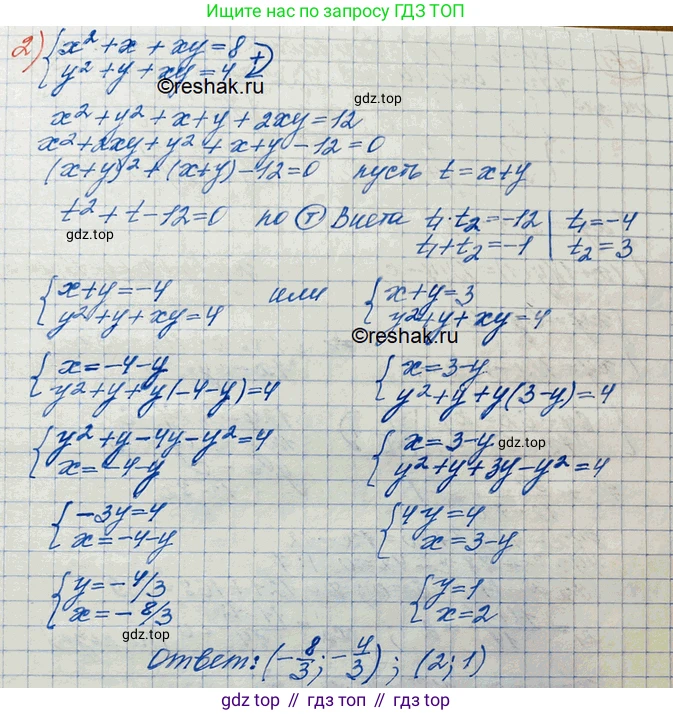 Ищите нас по запросу ГДЗ ТОП
2) { x² + x + xy = 8
{ y² + y + xy = 4 (+)
©reshak.ru
gdz.top
x² + y² + x + y + 2xy = 12
x² + 2xy + y² + x + y - 12 = 0
(x+y)² + (x+y) - 12 = 0 пусть t = x+y
t² + t - 12 = 0 по (т) Виета t₁·t₂ = -12 | t₁ = -4
t₁ + t₂ = -1 | t₂ = 3
gdz.top
gdz.top
{ x+y = -4 или { x+y = 3
{ y² + y + xy = 4 { y² + y + xy = 4
©reshak.ru
{ x = -4-y { x = 3-y
{ y² + y + y(-4-y) = 4 { y² + y + y(3-y) = 4
{ y² + y - 4y - y² = 4 { x = 3-y
{ x = -4-y { y² + y + 3y - y² = 4
gdz.top
{ -3y = 4 { 4y = 4
{ x = -4-y { x = 3-y
{ y = -4/3 { y = 1
{ x = -8/3 { x = 2
gdz.top
gdz.top
Ответ: (-8/3; -4/3); (2; 1)
gdz.top // гдз.топ // гдз.top